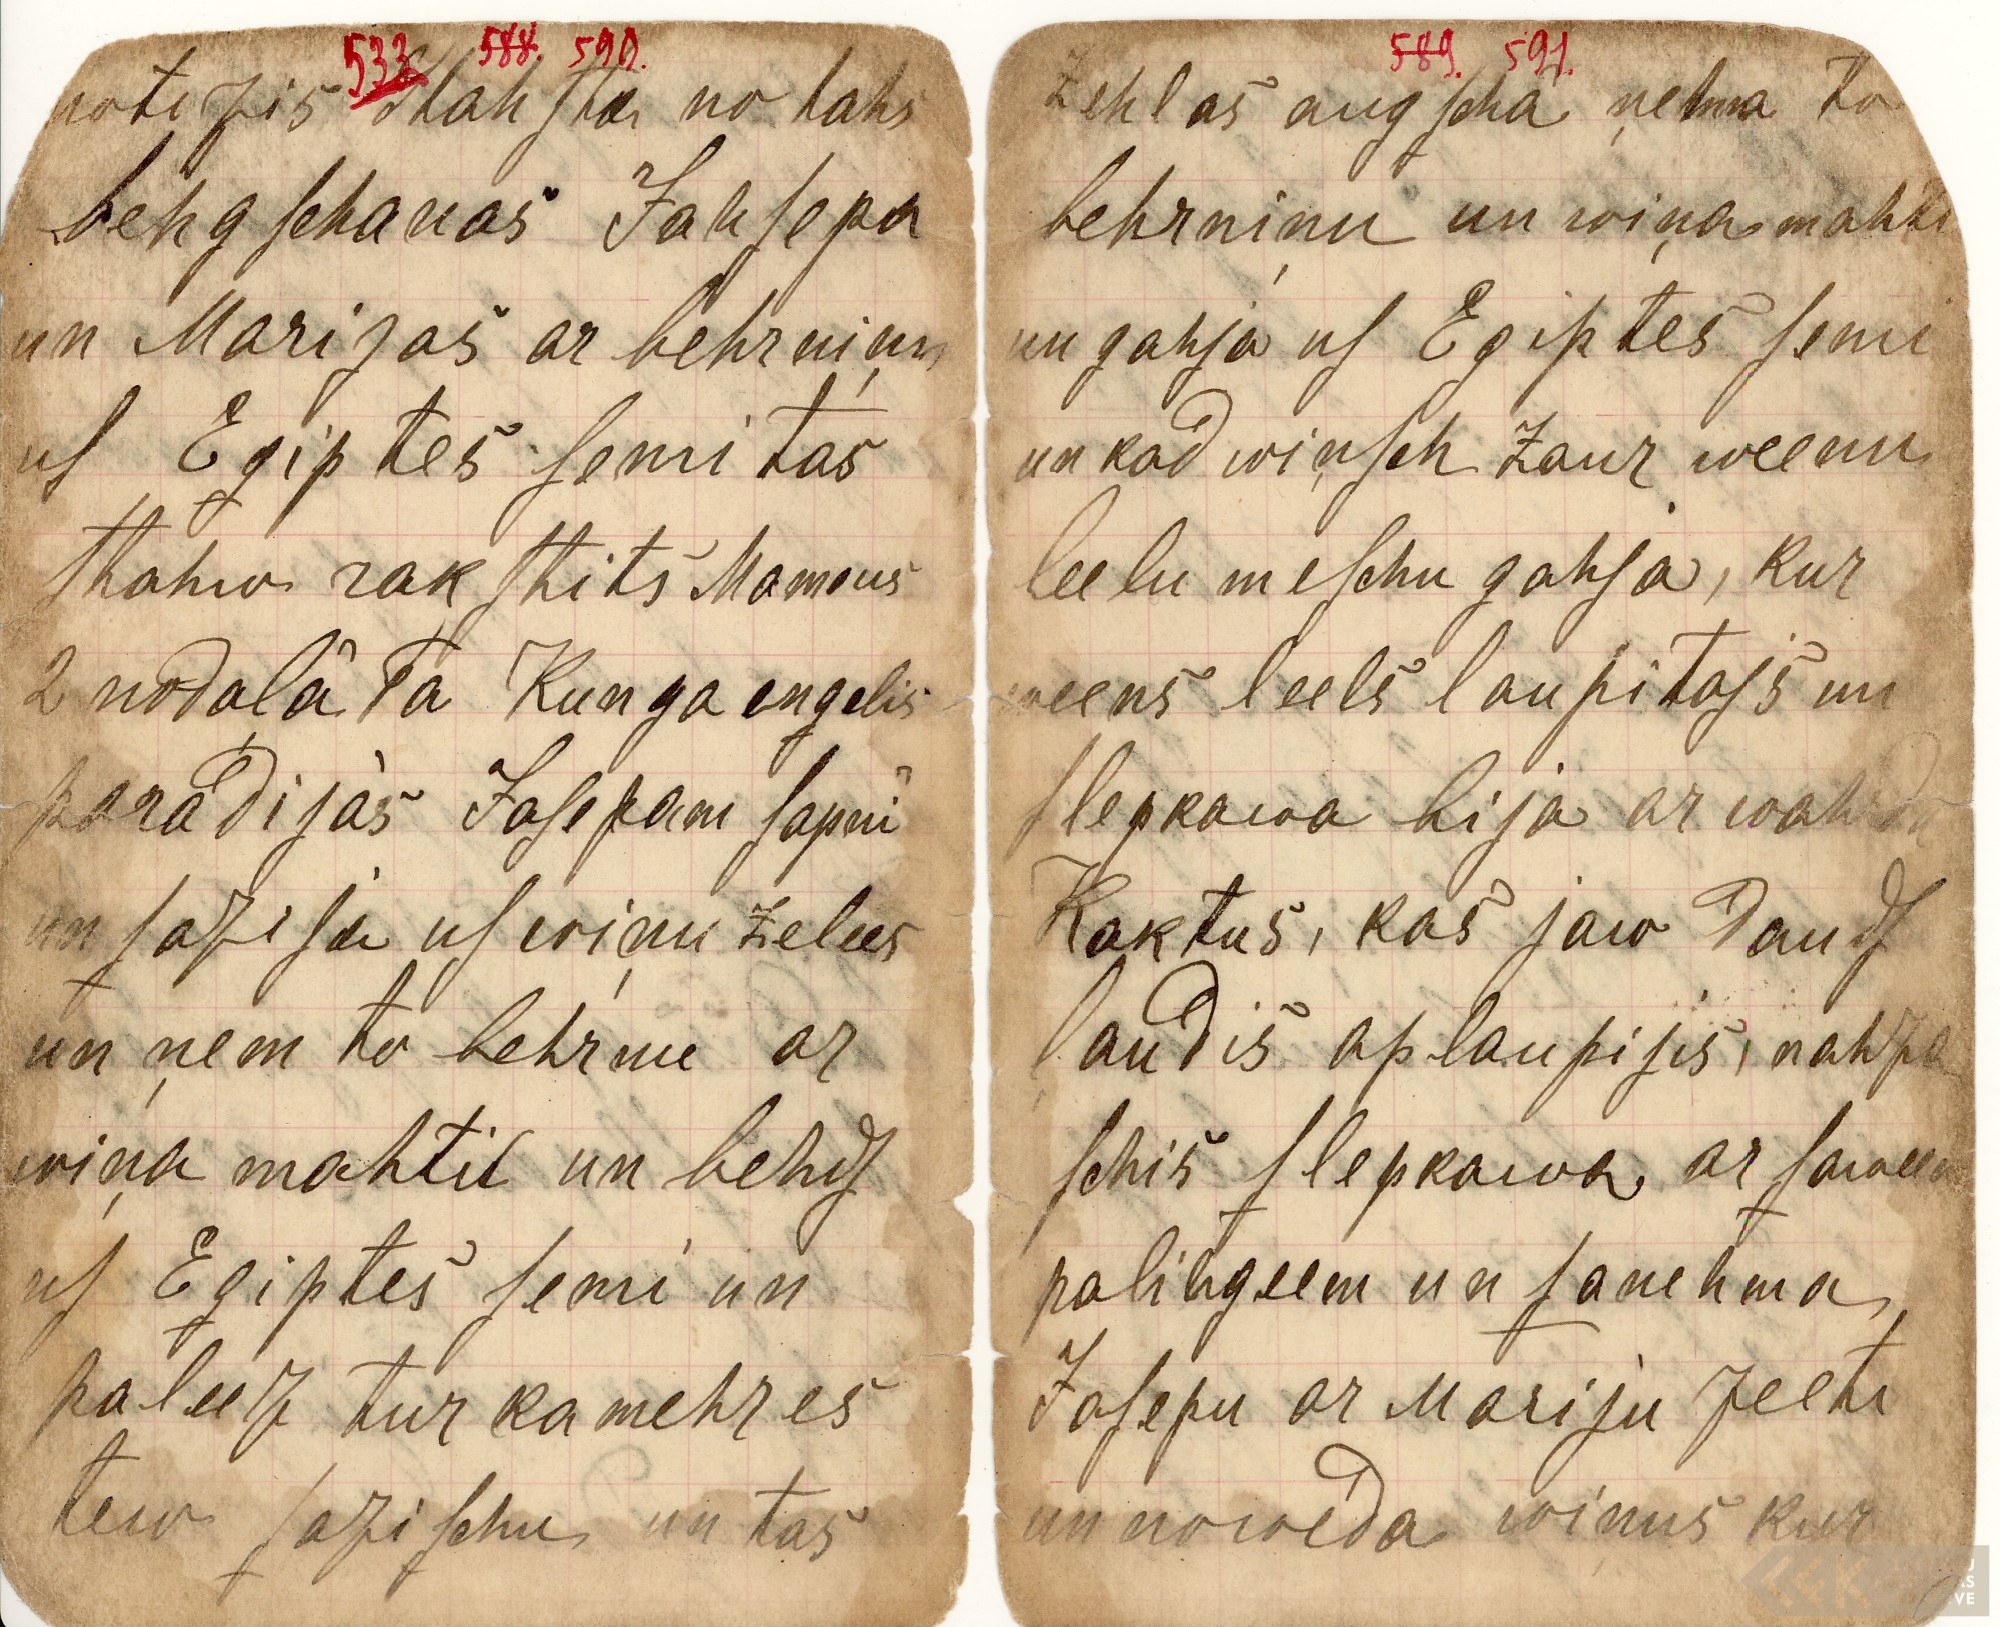 533 588. 590.
notizis Stahsta no tahs
behgschanas Jahsepa
un Marijas ar behrniņu
uſ Egiptes ſemi tas
stahw rakstits Mamous
2 nodaļâ Ta Kunga engelis
parādijàs Jaſepam ſapnî
un ſazija uſ wiņu zelees
un ņem to behrnie ar
wiņa mahtii un behdſ
uſ Egiptes ſemi un
paleez tur kamehr es
tew ſaziſchu un tas
589. 591.
Zehlas augſcha ņehma to
behrniņu un wiņa mahti
un gahja uſ Egiptes ſemi
un kad wiņſch zaur weenu
leelu meſchu gahja, kur
weens leels laupitajs un
ſlepkawa bija ar wahrdu
Kaktus, kas jaw daudſ
ļaudis aplaupijis, nahza
ſchis ſlepkawa ar ſaweem
palihgeem un ſanehma
Jaſepu ar Mariju zeeti
un noweda wiņus kur